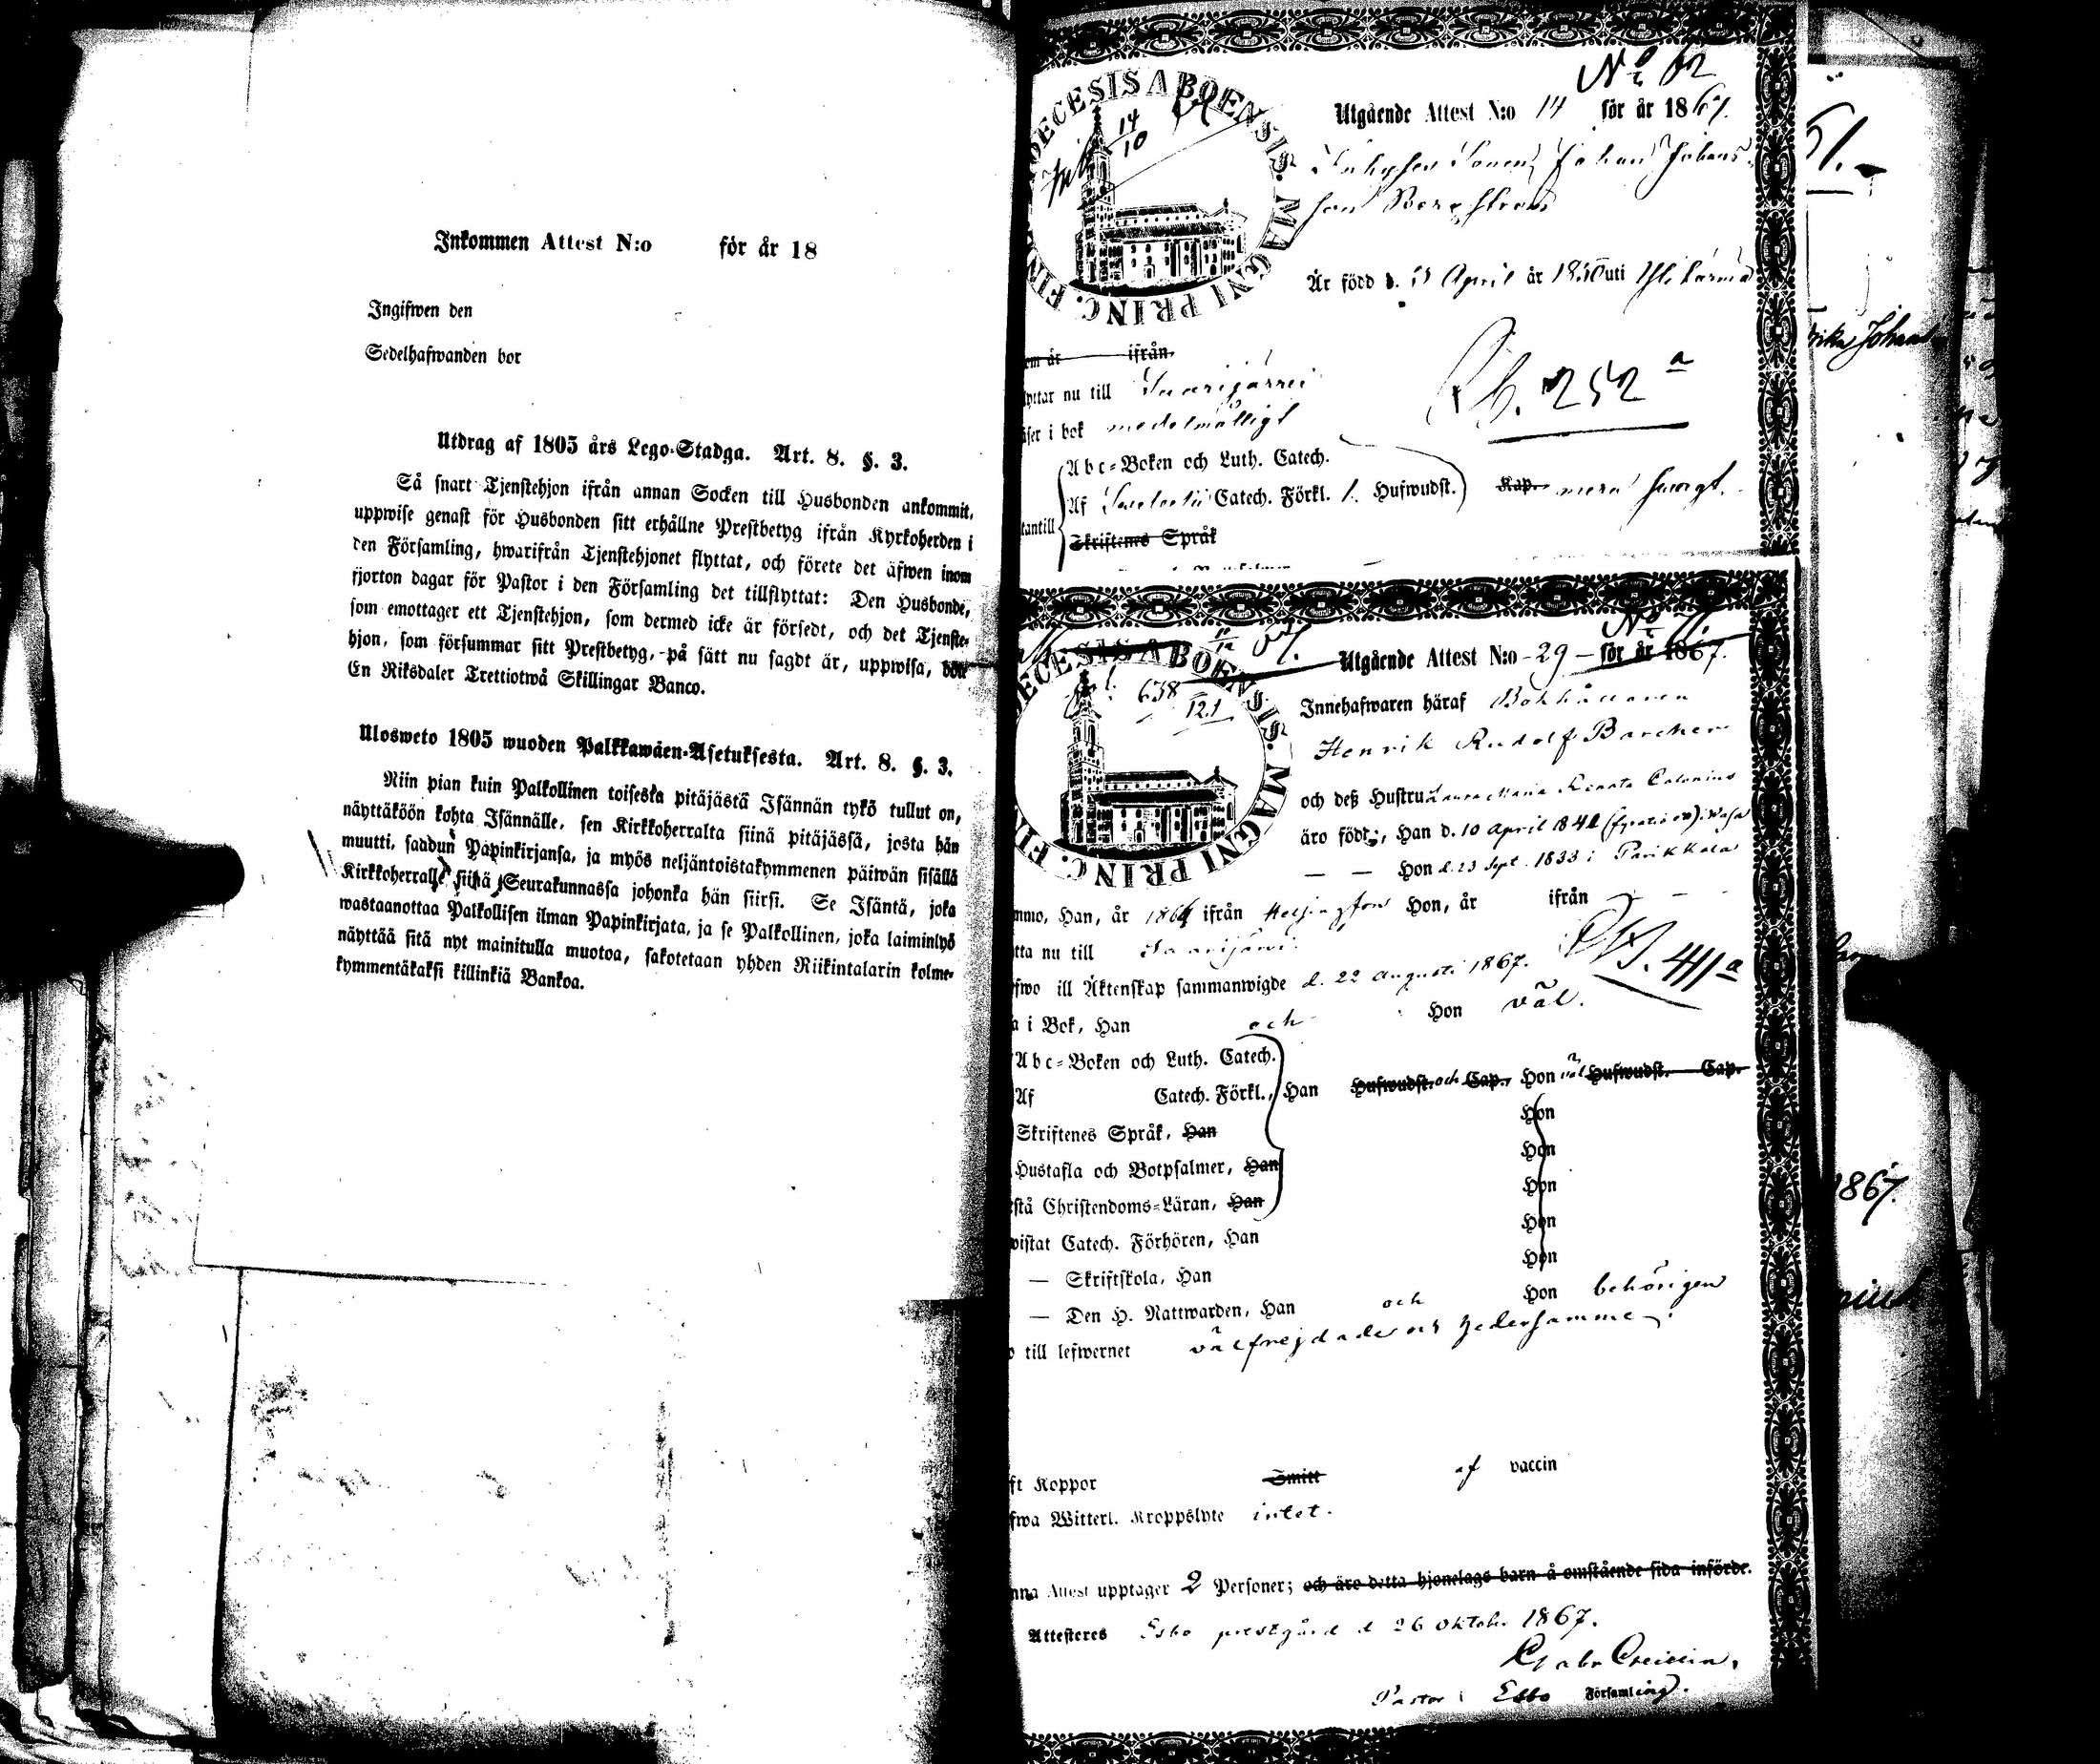 Inkommen Attest N:o för år 18
Ingifwen den
Sedelhafwanden bor
Utdrag af 1805 års Lego-Stadga. Art. 8. §. 3.
Så snart Tjenstehjon ifrån annan Socken till Husbonden ankommit,
uppwise genast för Husbonden sitt erhållne Prestbetyg ifrån Kyrkoherden i
den Församling, hwarifrån Tjenstehjonet flyttat, och förete det äfwen inom
fjorton dagar för Pastor i den Församling det tillflyttat: Den Husbonde,
som emottager ett Tjenstehjon, som dermed icke är försedt, och det Tjenste-
hjon, som försummar sitt Prestbetyg, på sätt nu sagdt är, uppwisa, böte
En Riksdaler Trettiotwå Skillingar Banco.
Ulosweto 1805 wuoden Palkkawäen-Asetuksesta. Art. 8. §. 3.
Niin pian kuin Palkollinen toisesta pitäjästä Isännän tykö tullut on,
näyttäköön kohta Isännälle, sen Kirkkoherralta siinä pitäjässä, josta hän
muutti, saadun Papinkirjansa, ja myös neljäntoistakymmenen päiwän sisällä
Kirkkoherralle siinä Seurakunnassa johonka hän siirsi. Se Isäntä, joka
wastaanottaa Palkollisen ilman Papinkirjata, ja se Palkollinen, joka laiminlyö
näyttää sitä nyt mainitulla muotoa, sakotetaan yhden Riikintalarin kolme-
kymmentäkaksi killinkiä Bankoa.
No 62
ECESIS ABOENSIS. MAGNI PRINC. FIN
14
10
Utgående Attest N:o 14 för år 1867.
Sonen Johan Johans
son
Är född d. 5 April år 1850 uti
em år ifrån
lyttar nu till Saarijärvi
Rb. 252 a
äser i bok medelmåttigt
Abc-Boken och Luth. Catech.
Af Catech. Förkl. 1. Hufwudst. Kap. svagt.
tantill
Skriftenes Språk
No 61.
ECESIS ABOENSIS. MAGNI PRINC. FI
638
12.1
Utgående Attest N:o 29 för år 1867.
Innehafwaren häraf Bokhållaren
Henrik Rudolf Barcher
och deß Hustru Laura Maria Renata Calonius
äro födt:, Han d. 10 April 1842 Wasa
— — Hon d. 23 Sept. 1833 i Parikkala
mmo, Han, år 1864 ifrån Helsingfors Hon, år ifrån — —
tta nu till Saarijärvi.
411 a
fwo ill Äktenskap sammanwigde d. 22 Augusti 1867.
a i Bok, Han och Hon väl.
Abc-Boken och Luth. Catech.
Af Catech. Förkl., Han Hufwudst. och Cap., Hon väl Hufwudst. Cap.
Skriftenes Språk, Han Hon
Hustafla och Botpsalmer, Han Hon
stå Christendoms-Läran, Han Hon
wistat Catech. Förhören, Han Hon
— Skriftskola, Han Hon
— Den H. Nattwarden, Han och Hon behörigen
o till lefwernet välfrejdade och hedersamme.
ft Koppor Smitt af vaccin
fwa Witterl. Kroppslyte intet.
nna Attest upptager 2 Personer; och äro detta hjonelags barn å omstående sida införde.
Attesteres Esbo prestgård d 26 Oktober 1867.
Pastor i Esbo Församling.
51.
Johan
1867.